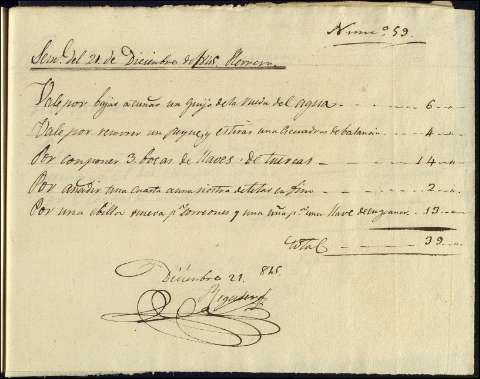 Numo. 59.
Sem.a del 21 de Diciembre de 1845. Herrero
Vale por bajar a cuñar un gujo de la rueda del agua 6
Vale por remover un peque, y estirar una de balanza 4
Por componer 3 bocas de llaves de tuercas 14
Por añadir una cuarta a una de fino 2
Por una nueva p.a torreones y una uña p.a una llave de cuzanar 13
total 39
Diciembre 21. 845